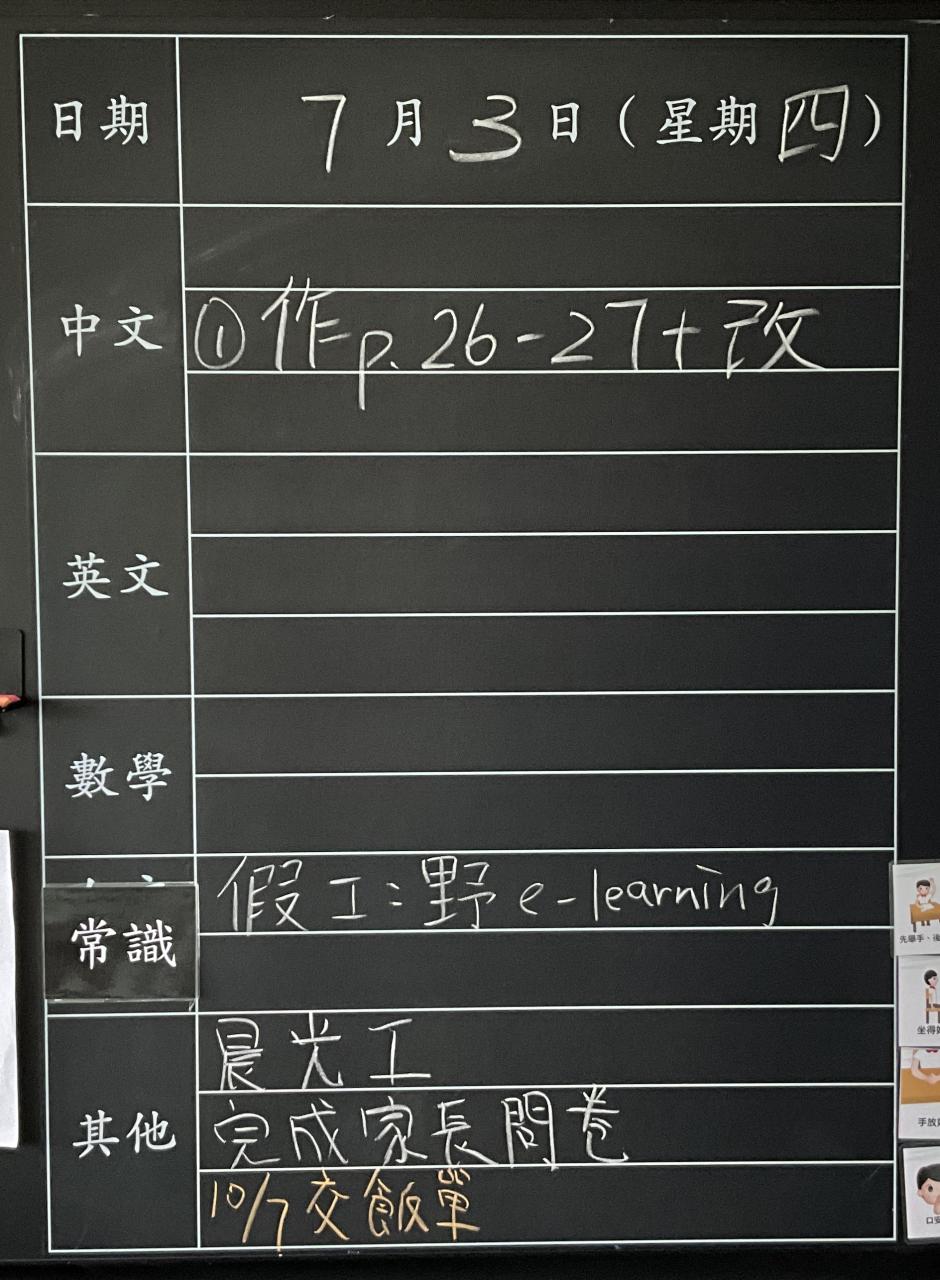 日期 7月3日（星期四）
中文 ①作p.26-27+改
英文
數學
常識 假工：野e-learning
其他 晨光工
完成家長問卷
10/7交飯單
先舉手、後
坐得好
手放好
口安